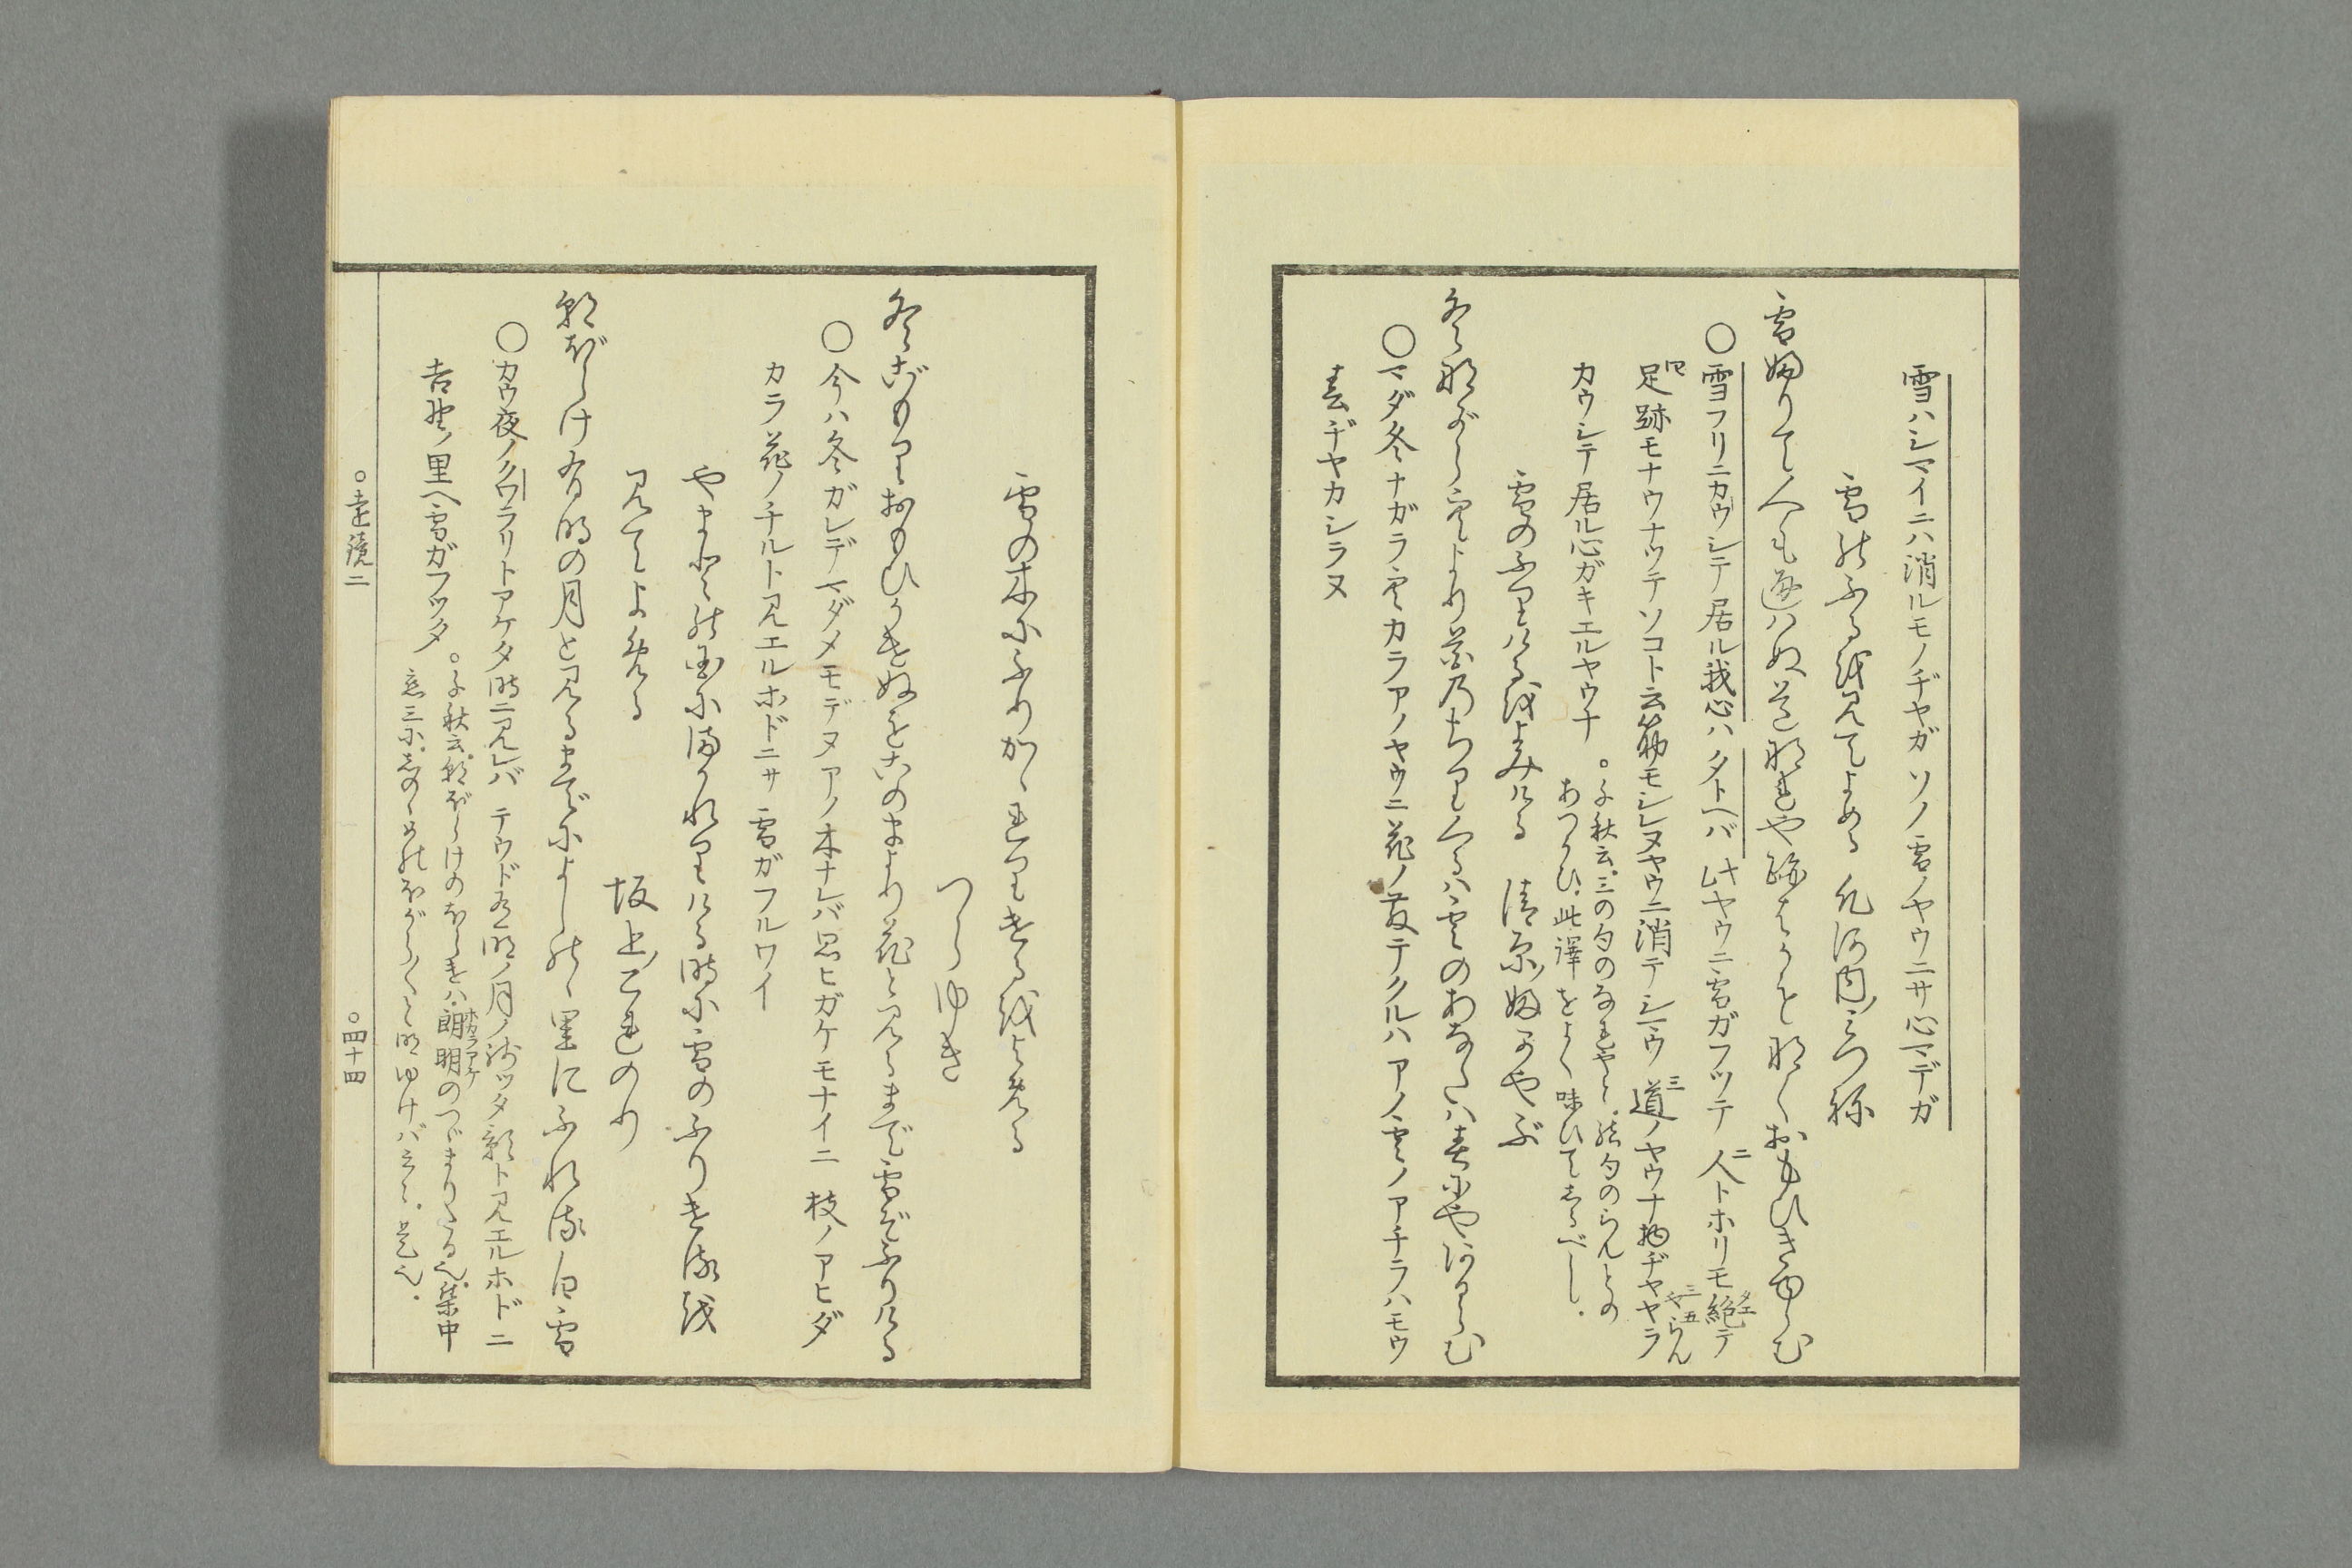 雪ハシマイニハ消ルモノヂヤガ ソノ雪ノヤウニサ心マデガ
雪のふるを見てよめる 凡河内ノみつね
雪ふりて人もかよはぬ道なれや跡はかもなくおもひきゆらむ
○雪フリニカウシテ居ル我心ハ タトヘバ ヒヤウニ雪ガフツテ 人トホリモ絶テ
足跡モナウナツテソコト云筋モシレヌヤウニ消テシマウ 道ノヤウナ物ヂヤヤラ
カウシテ居ル心ガキエルヤウナ
○千秋云、三の句のなれやと、結句のらんとの
あつかひ、此譯をよく味ひてしるべし、
雪のふりけるをよみける 清原ノ深やぶ
冬ながら空より花のちりくるは雲のあなたは春にやあるらむ
○マダ冬ナガラ空カラアノヤウニ花ノ散テクルハ アノ雲ノアチラハモウ
春ヂヤカシラヌ
雪の木にふりかゝれりけるをよめる
つらゆき
冬ごもりおもひかけぬをこのまより花と見るまで雪ぞふりける
○今ハ冬ガレデマダメモデヌアノ木ナレバ思ヒガケモナイニ 枝ノアヒダ
カラ花ノチルト見エルホドニサ 雪ガフルワイ
やまとの国にまかれりける時に雪のふりけるを
見てよめる
坂上ノこれのり
朝ぼらけ有明の月と見るまでによしのゝ里にふれる白雪
○カウ夜ノクワラリトアケタ時ニ見レバ テウド有明ノ月ノ残ツタ影ト見エルホドニ
吉野ノ里ヘ雪ガフツタ
○千秋云、朝ぼらけのほらけは、朗明のつゞまりたる也、集中
恋三に、しのゝめのほがら〳〵と明ゆけばとある、是也、
○遠鏡二
○四十四